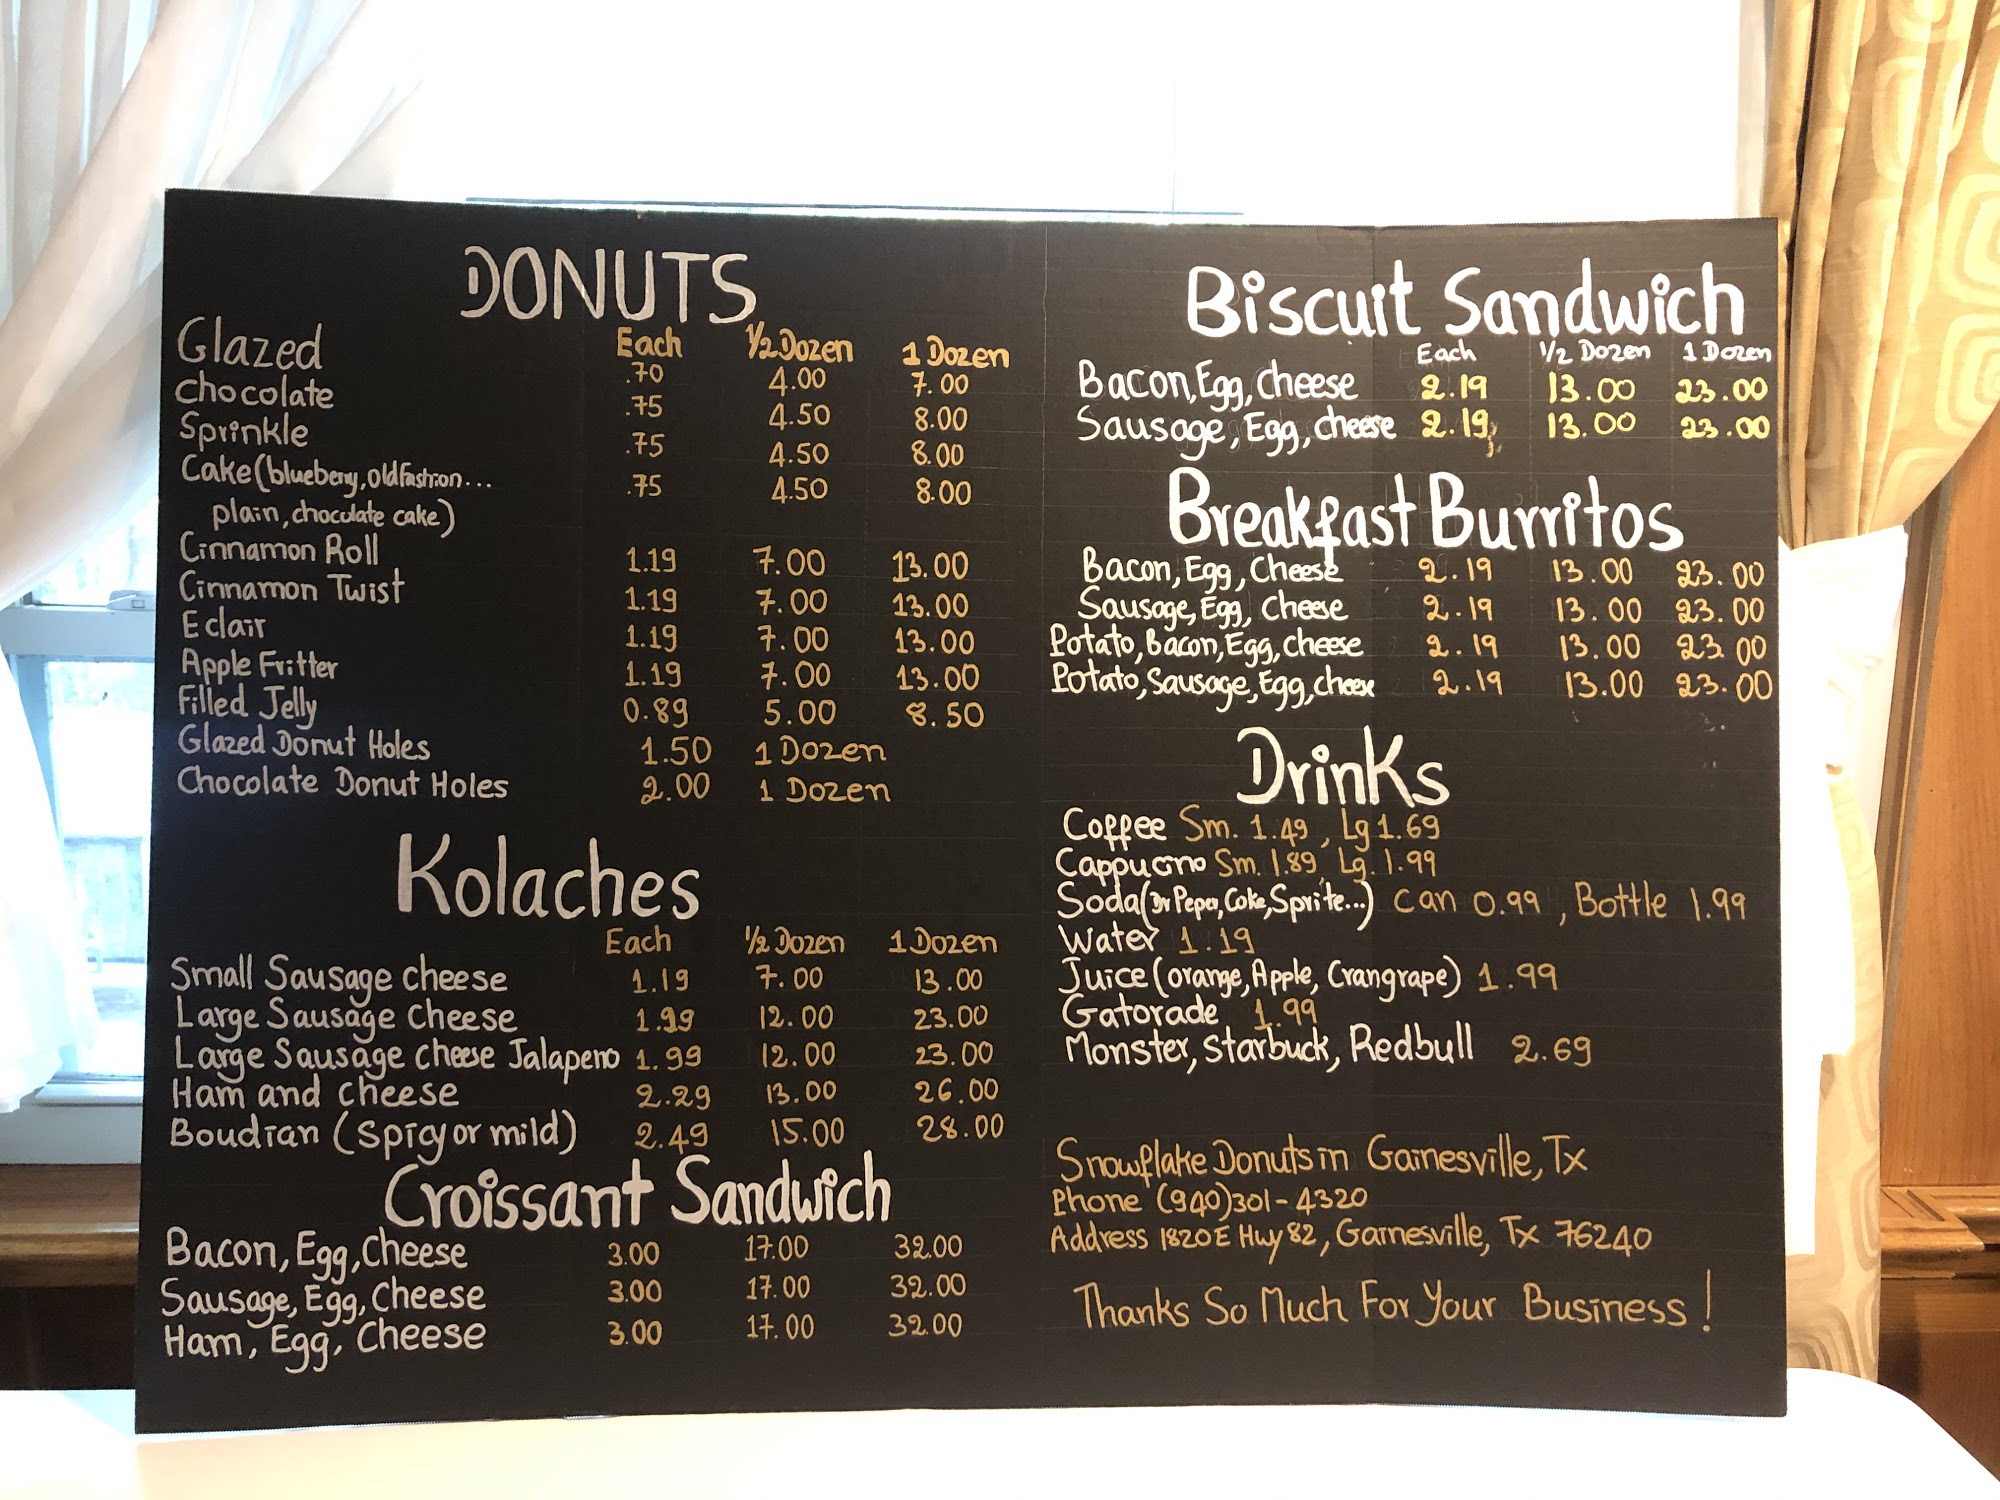 DONUTS
Each 1/2 Dozen 1 Dozen
Glazed .70 4.00 7.00
Chocolate .75 4.50 8.00
Sprinkle .75 4.50 8.00
Cake (blueberry, old fashion... .75 4.50 8.00
plain, chocolate cake)
Cinnamon Roll 1.19 7.00 13.00
Cinnamon Twist 1.19 7.00 13.00
Eclair 1.19 7.00 13.00
Apple Fritter 1.19 7.00 13.00
Filled Jelly 0.89 5.00 8.50
Glazed Donut Holes 1.50 1 Dozen
Chocolate Donut Holes 2.00 1 Dozen
Kolaches
Each 1/2 Dozen 1 Dozen
Small Sausage cheese 1.19 7.00 13.00
Large Sausage Cheese 1.99 12.00 23.00
Large Sausage cheese Jalapeno 1.99 12.00 23.00
Ham and cheese 2.29 13.00 26.00
Boudian (Spicy or mild) 2.49 15.00 28.00
Croissant Sandwich
Bacon, Egg, Cheese 3.00 17.00 32.00
Sausage, Egg, Cheese 3.00 17.00 32.00
Ham, Egg, Cheese 3.00 17.00 32.00
Biscuit Sandwich
Each 1/2 Dozen 1 Dozen
Bacon, Egg, Cheese 2.19 13.00 23.00
Sausage, Egg, Cheese 2.19 13.00 23.00
Breakfast Burritos
Bacon, Egg, Cheese 2.19 13.00 23.00
Sausage, Egg, Cheese 2.19 13.00 23.00
Potato, Bacon, Egg, Cheese 2.19 13.00 23.00
Potato, Sausage, Egg, cheese 2.19 13.00 23.00
Drinks
Coffee Sm. 1.49, Lg 1.69
Cappucino Sm. 1.89, Lg. 1.99
Soda (Dr Peper, Coke, Sprite...) Can 0.99, Bottle 1.99
Water 1.19
Juice (orange, Apple, Crangrape) 1.99
Gatorade 1.99
Monster, Starbuck, Redbull 2.69
Snowflake Donuts in Gainesville, Tx
Phone (940)301-4320
Address 1820 E Hwy 82, Gainesville, Tx 76240
Thanks So Much For Your Business!